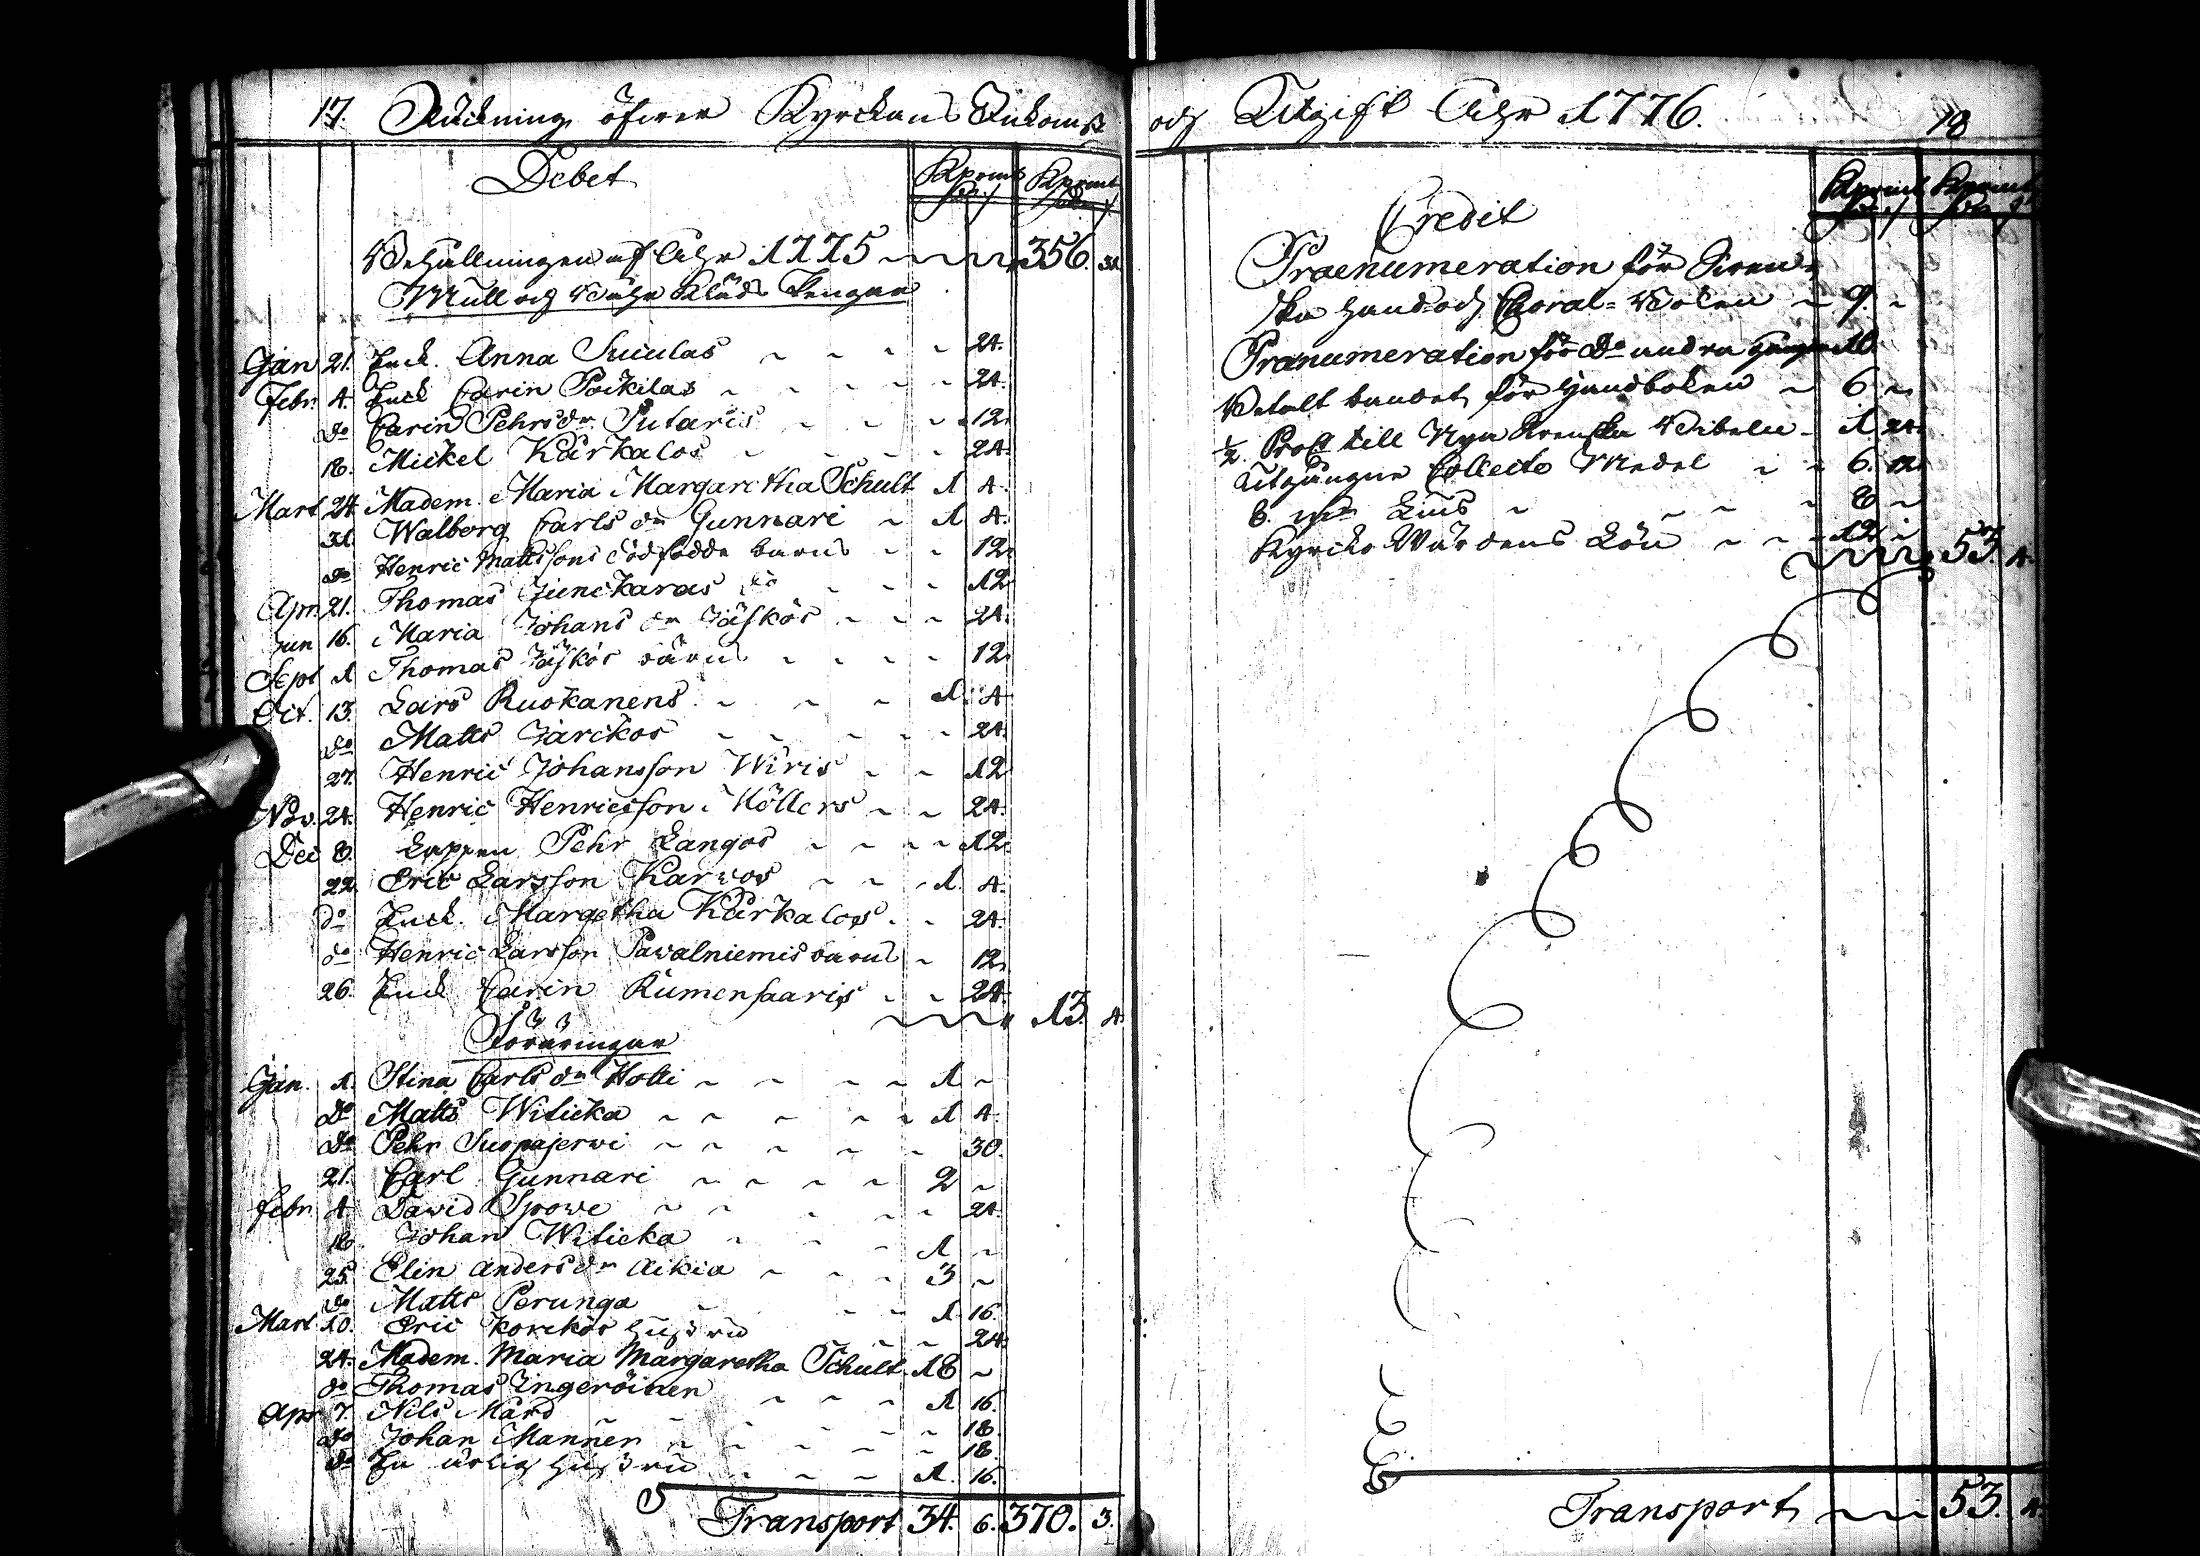 17. Räckning öfwer Kyrckans Inkomst
Debet
Kpmt Kpmt
Behållningen af Åhr 1775 ~ ~ ~ 356. 31
Mull och Båhr Kläds Pengar
Jan 21. Enck. Anna Suiulas ~ ~ ~ ~ 24.
Febr. 4. Enck Carin Poikilas ~ ~ ~ ~ 24.
do Carin Pehrsdr Putaris ~ ~ ~ 12.
18. Mickel Kärkalos ~ ~ ~ ~ 24.
Mart 24 Madem. Maria Margaretha Schult 1 4.
31. Walborg Carls dr Gunnari ~ 1 4.
do Henric Mattssons dödfödde barns ~ ~ 12.
Apr. 21. Thomas Junckaras do ~ ~ ~ 12
Jun 16. Maria Johans dr Jäskös ~ ~ ~ 24.
Sept 1 Thomas Jäskös barns ~ ~ ~ ~ 12.
Oct. 13. Lars Ruokanens ~ ~ ~ 1. 4
do Matts Jarckos ~ ~ ~ ~ ~ 24.
27. Henric Johansson Wiris ~ ~ 12
Nov. 24. Henric Henricsson Möllers ~ ~ 24.
Dec 8. Lappen Pehr Langos ~ ~ ~ ~ 12.
22. Eric Larsson Karvos ~ ~ ~ 1. 4.
do Enck. Margetha Kärkalos. ~ 24.
do Henric Larsson Pavalniemis barns ~ 12.
26. Enck Carin Kumensaaris ~ ~ 24.
13. 4.
Föräringar
Jan. 1. Stina Carls dr Holti ~ ~ ~ ~ 1 ~
Do Matts Witicka ~ ~ ~ ~ ~ 1 4.
Do Pehr Suopajerwi ~ ~ ~ ~ ~ 30.
21. Carl Gunnari ~ ~ ~ ~ 2 ~
febr. 4. David Spowe ~ ~ ~ ~ ~ 24.
18. Johan Witicka ~ ~ ~ 1 ~
25. Elin Anders dr Aikia ~ ~ ~ 3 ~
do Matts Perunga ~ ~ ~ 1. 16.
Mart 10. Eric Korckos Hustru ~ ~ 24.
24. Madem. Maria Margaretha Schult. 18 ~
do Thomas Ingeröinen ~ ~ ~ 1 16.
Apr 7. Nils Mård ~ ~ ~ ~ 18.
Do Johan Mannen ~ ~ ~ ~ ~ 18.
do En ärlig Hustru ~ ~ ~ 1. 16.
Transport 34. 6. 370. 3.
och Utgift Åhr 1776. 18
Credit
Kpmt Kpmt
Praenumeration för Swen-
ska Hand och Choral-Boken ~ 9. ~
Pränumeration för Do andra gången 10.
Betalt bandet för Handboken ~ 6 ~
1/2 Proct till Nya Swenska Bibelen - 1 24.
Utgångne Collecte Medel ~ ~ 6. 12.
8. Lius ~ ~ ~ ~ 8 ~
Kyrcko Wärdens Lön ~ ~ ~ 12 ~
53. 4.
Transport ~ ~ 53. 4.